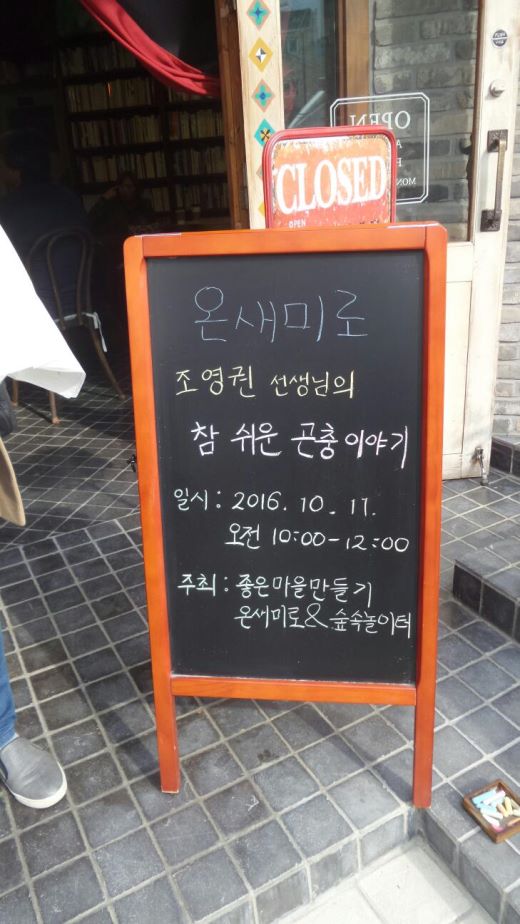 OPEN
MON
CLOSED
OPEN
온새미로
조영권 선생님의
참 쉬운 곤충 이야기
일시 : 2016. 10. 17.
오전 10:00-12:00
주최 : 좋은마을만들기
온새미로 & 숲속놀이터